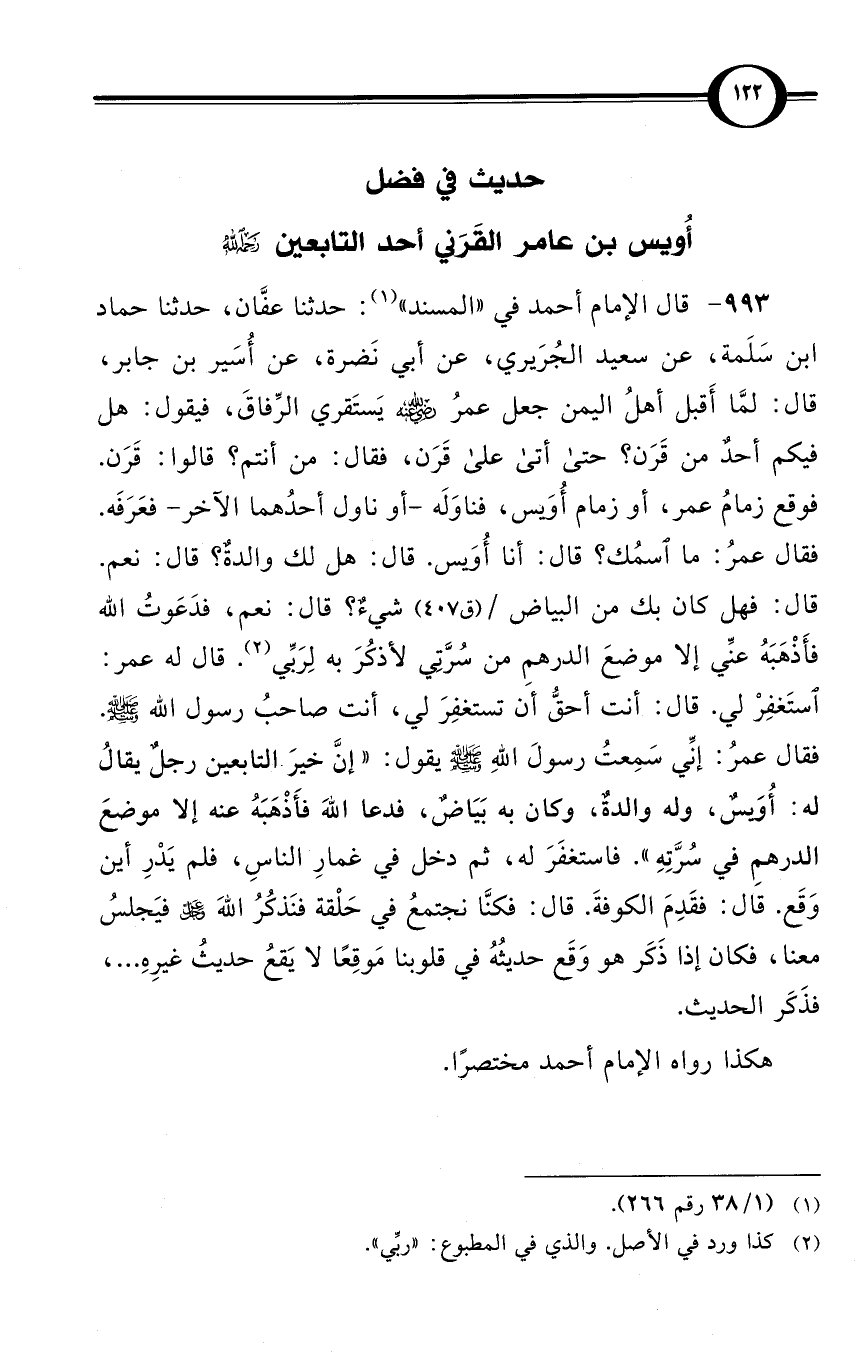 ١٢٢
حديث في فضل
أُويس بن عامر القَرَني أحد التابعين رَحِمَهُ اللهُ
٩٩٣- قال الإمام أحمد في «المسند»(١): حدثنا عفَّان، حدثنا حماد
ابن سَلَمة، عن سعيد الجُرَيري، عن أبي نَضرة، عن أُسَير بن جابر،
قال: لمَّا أَقبل أهلُ اليمن جعل عمرُ رضي الله عنه يَستَقري الرِّفاقَ، فيقول: هل
فيكم أحدٌ من قَرَن؟ حتىٰ أتىٰ علىٰ قَرَن، فقال: من أنتم؟ قالوا: قَرَن.
فوقع زمامُ عمر، أو زمام أُوَيس، فناوَلَه -أو ناول أحدُهما الآخر- فعَرَفَه.
فقال عمرُ: ما ٱسمُك؟ قال: أنا أُوَيس. قال: هل لك والدةٌ؟ قال: نعم.
قال: فهل كان بك من البياض /(ق٤٠٧) شيءٌ؟ قال: نعم، فدَعَوتُ الله
فأَذْهَبَهُ عنِّي إلا موضعَ الدرهمِ من سُرَّتِي لأذكُرَ به لِرَبِّي(٢). قال له عمر:
ٱستَغفِرْ لي. قال: أنت أحقُّ أن تستغفِرَ لي، أنت صاحبُ رسول الله ﷺ.
فقال عمرُ: إنِّي سَمِعتُ رسولَ اللهِ ﷺ يقول: «إنَّ خيرَ التابعين رجلٌ يقالُ
له: أُوَيسٌ، وله والدةٌ، وكان به بَيَاضٌ، فدعا اللهَ فأَذْهَبَهُ عنه إلا موضعَ
الدرهمِ في سُرَّتِهِ». فاستغفَرَ له، ثم دخل في غمارِ الناسِ، فلم يَدْرِ أين
وَقَع. قال: فقَدِمَ الكوفةَ. قال: فكنَّا نجتمعُ في حَلْقة فنَذكُرُ اللهَ عز وجل فيَجلسُ
معنا، فكان إذا ذَكَر هو وَقَع حديثُهُ في قلوبنا مَوقِعًا لا يَقعُ حديثُ غيرِهِ...،
فذَكَر الحديث.
هكذا رواه الإمام أحمد مختصرًا.
(١) (٣٨/١ رقم ٢٦٦).
(٢) كذا ورد في الأصل. والذي في المطبوع: «ربِّي».